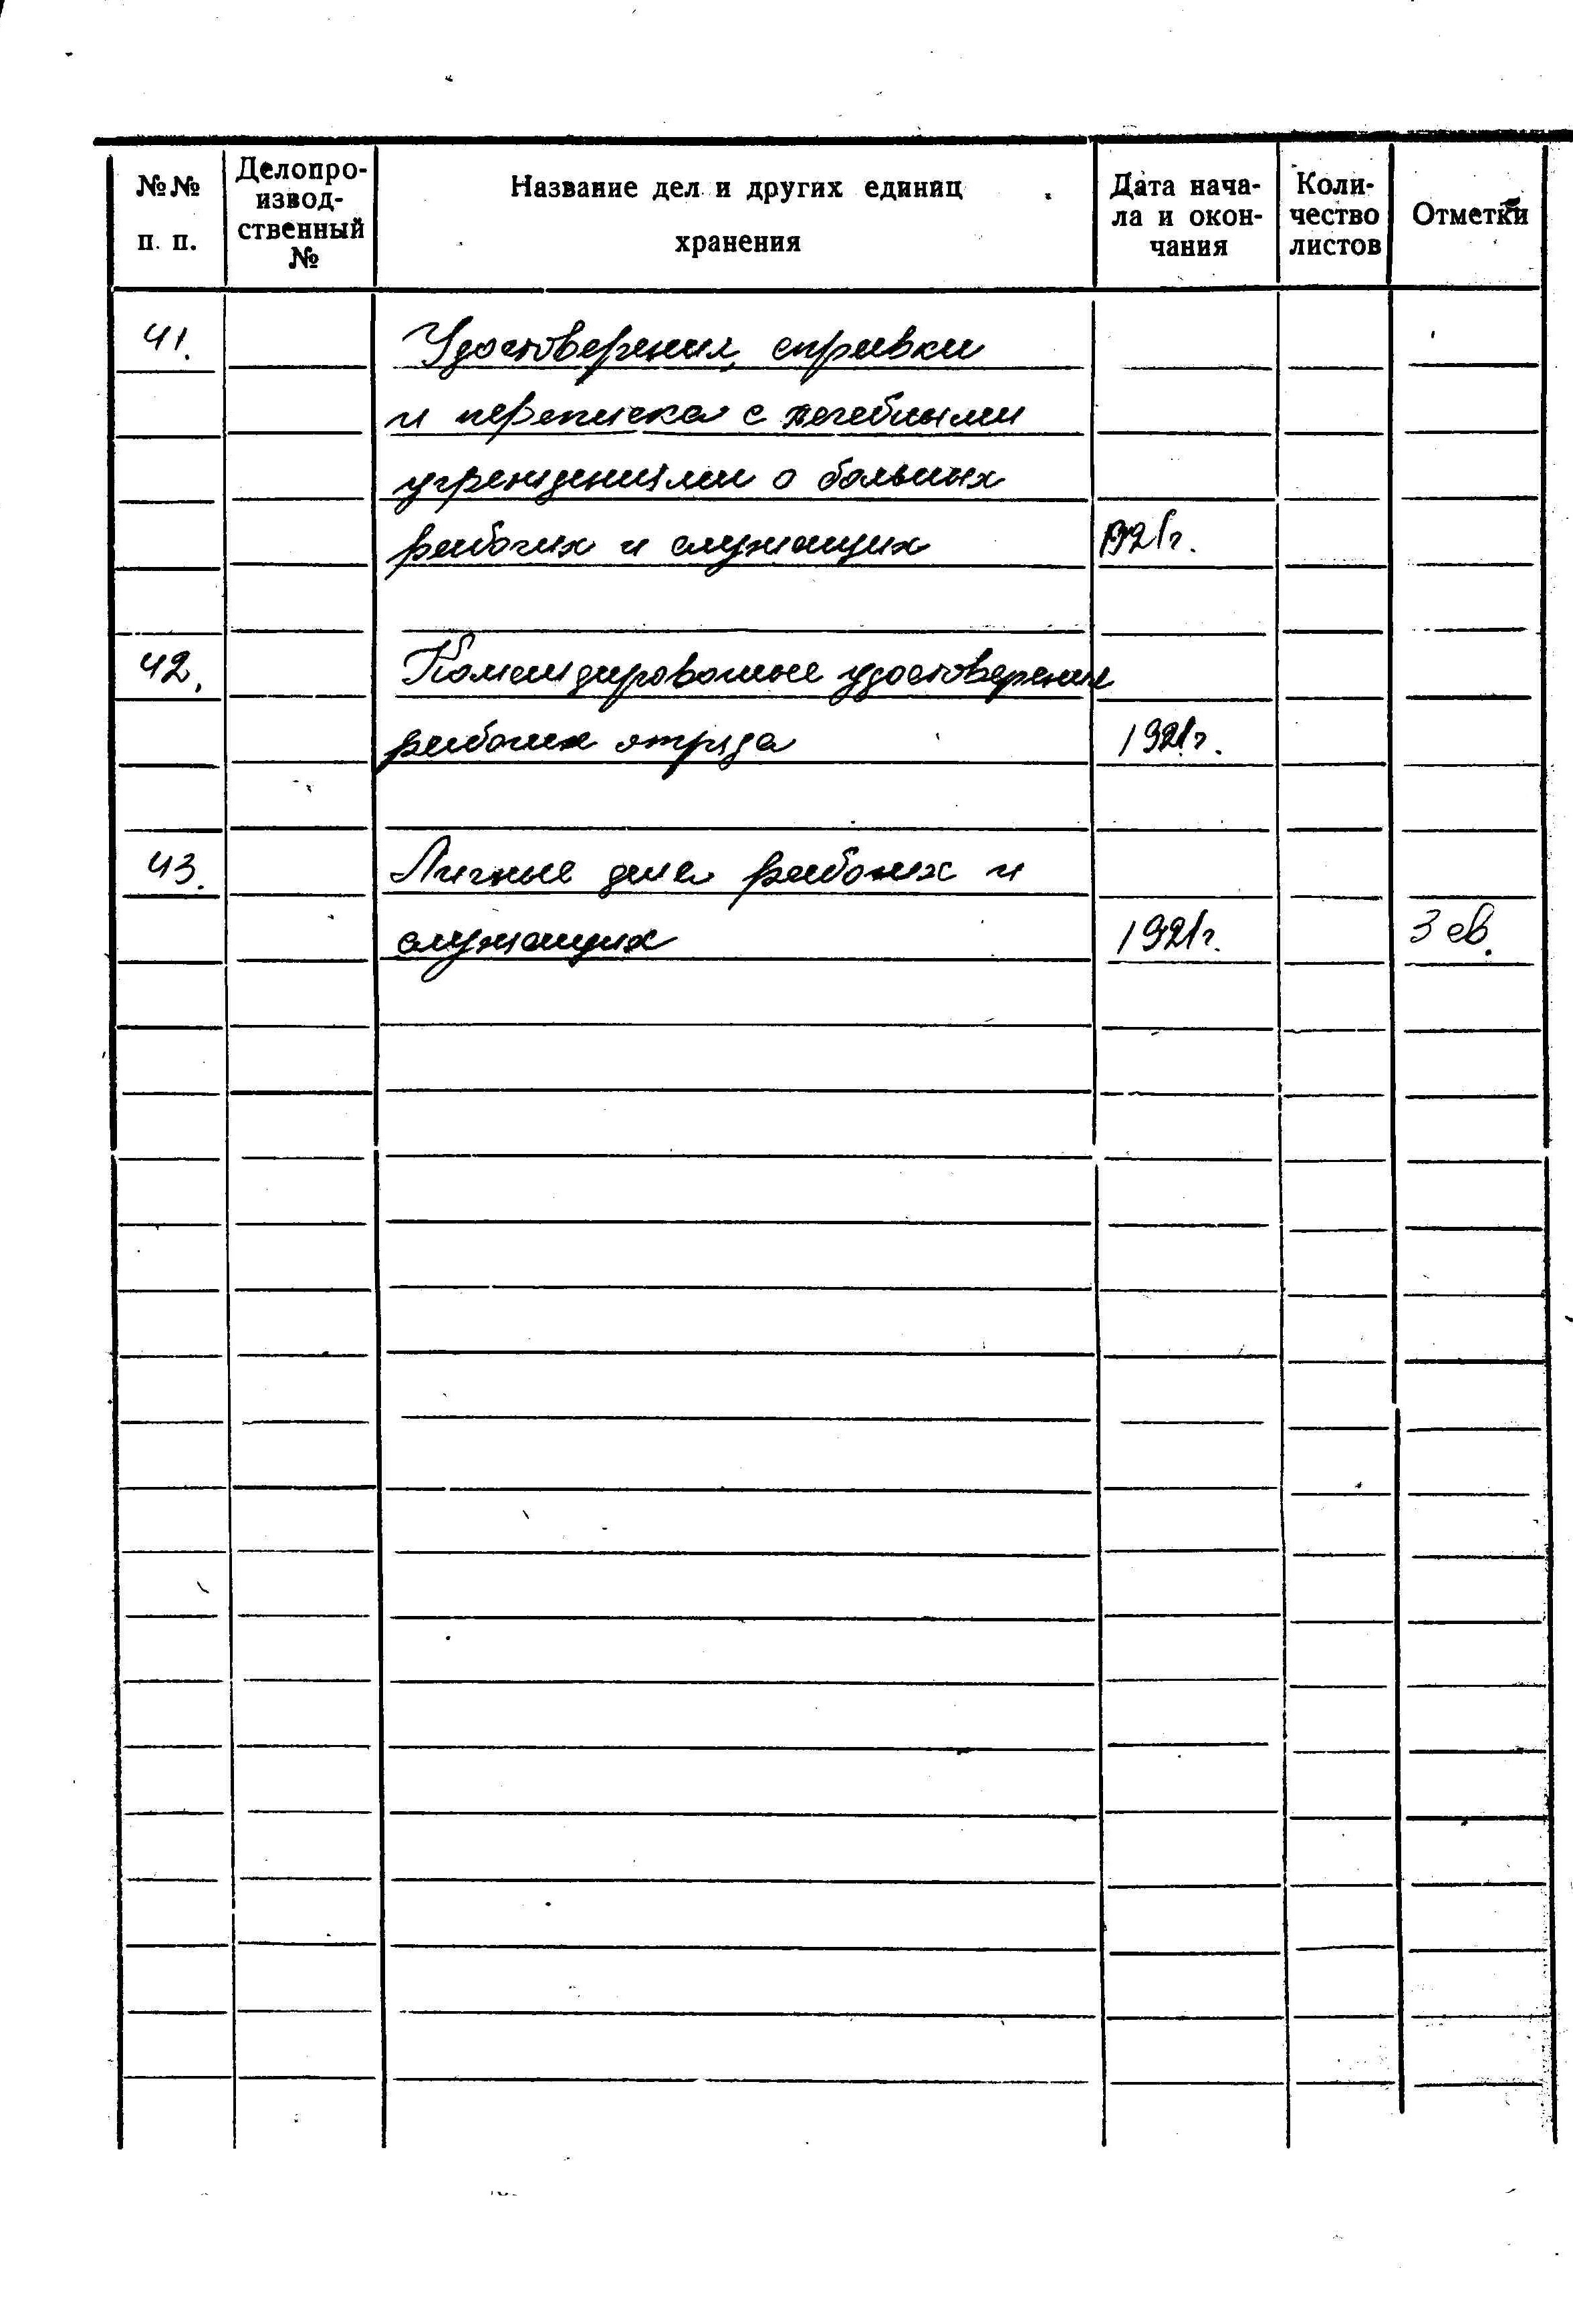 №№ п. п.
Делопро-
извод-
ственный
№
Название дел и других единиц
хранения
Дата нача-
ла и окон-
чания
Коли-
чество
листов
Отметки
41.
Удостоверения, справки
и переписка с лечебными
учреждениями о больных
рабочих и служащих 1921г.
42. Командировочные удостоверения
рабочих отряда 1921г.
43. Личные дела рабочих и
служащих 1921г. 3 св.